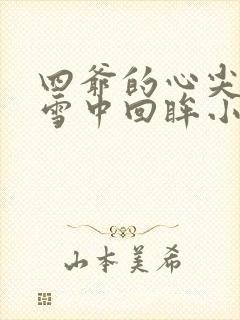 四爷的心尖
雪中回眸小
山本美希